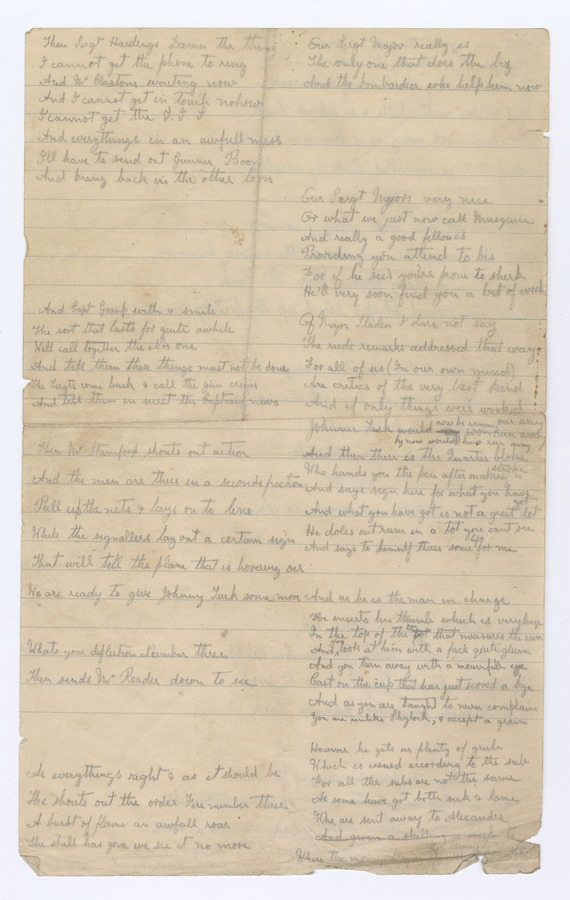 Then Sergt Hardings Damn the thing
I cannot get the phone to ring
And Mr Claxtons waiting now
And I cannot get in touch nohow
I cannot get the
And everythings in an awfull mess
I'll have to send out Gunner, Boon
And bring back in the other loon
And Capt Gossip with a smile
The sort that lasts for quite awhile
Will call together the Nos one
And tell them these things must not be done
The Sergts come back & call the gun crews
And tell them in secret the Captains news
Then Mr Stamford shouts out action
And the men are there in a seconds fraction
Pull up the nets & lays on to line
While the signallers lay out a certain sign
That will tell the plane that is hovering oer
We are ready to give Johnny Turk some more
Whats your deflection Number three
Then sends Mr Reader down to see
As everythings right & as it should be
He shouts out the order Fire number three
A burst of flame an awfull roar
The shell has gone we see it no more
Our Sergt Major really is
The only one that does the biz
And the bombardier who helps him now
Our Sergt Majors very nice
Or what we just now call
And really a good fellow is
Providing you attend to his
For if he sees you're prone to shirk
He'll very soon find you a bit of work
Of Major Sladen I dare not say
The rude remarks addressed that way
For all of us (In our own mind)
Are critics of the very best kind
And if only things were worked
Johnnie Turk would now be running
by now would have run away
And then there is the Quarter bloke
Who hands you the pen after making a stroke
And says sign here for what you have got
And what you have got is not a great lot
He doles out rum in a tot you cant see
And says to himself theres some left for me
And as he is the man in charge
He inserts his thumb which is very large
In the top of the tot that measures the rum
And you look at him with a face quite glum
And you turn away with a mournfull eye
Cast on the cup that has just scored a bye
And as you are taught to never complain
You are unlike Shylock, & accept a grain
However he gets us plenty of grub
Which is issued according to the sub
For all the subs are not the same
As some have got both sick & lame
Who are sent away to Alexandria
And given a shilling a week to
Where the money